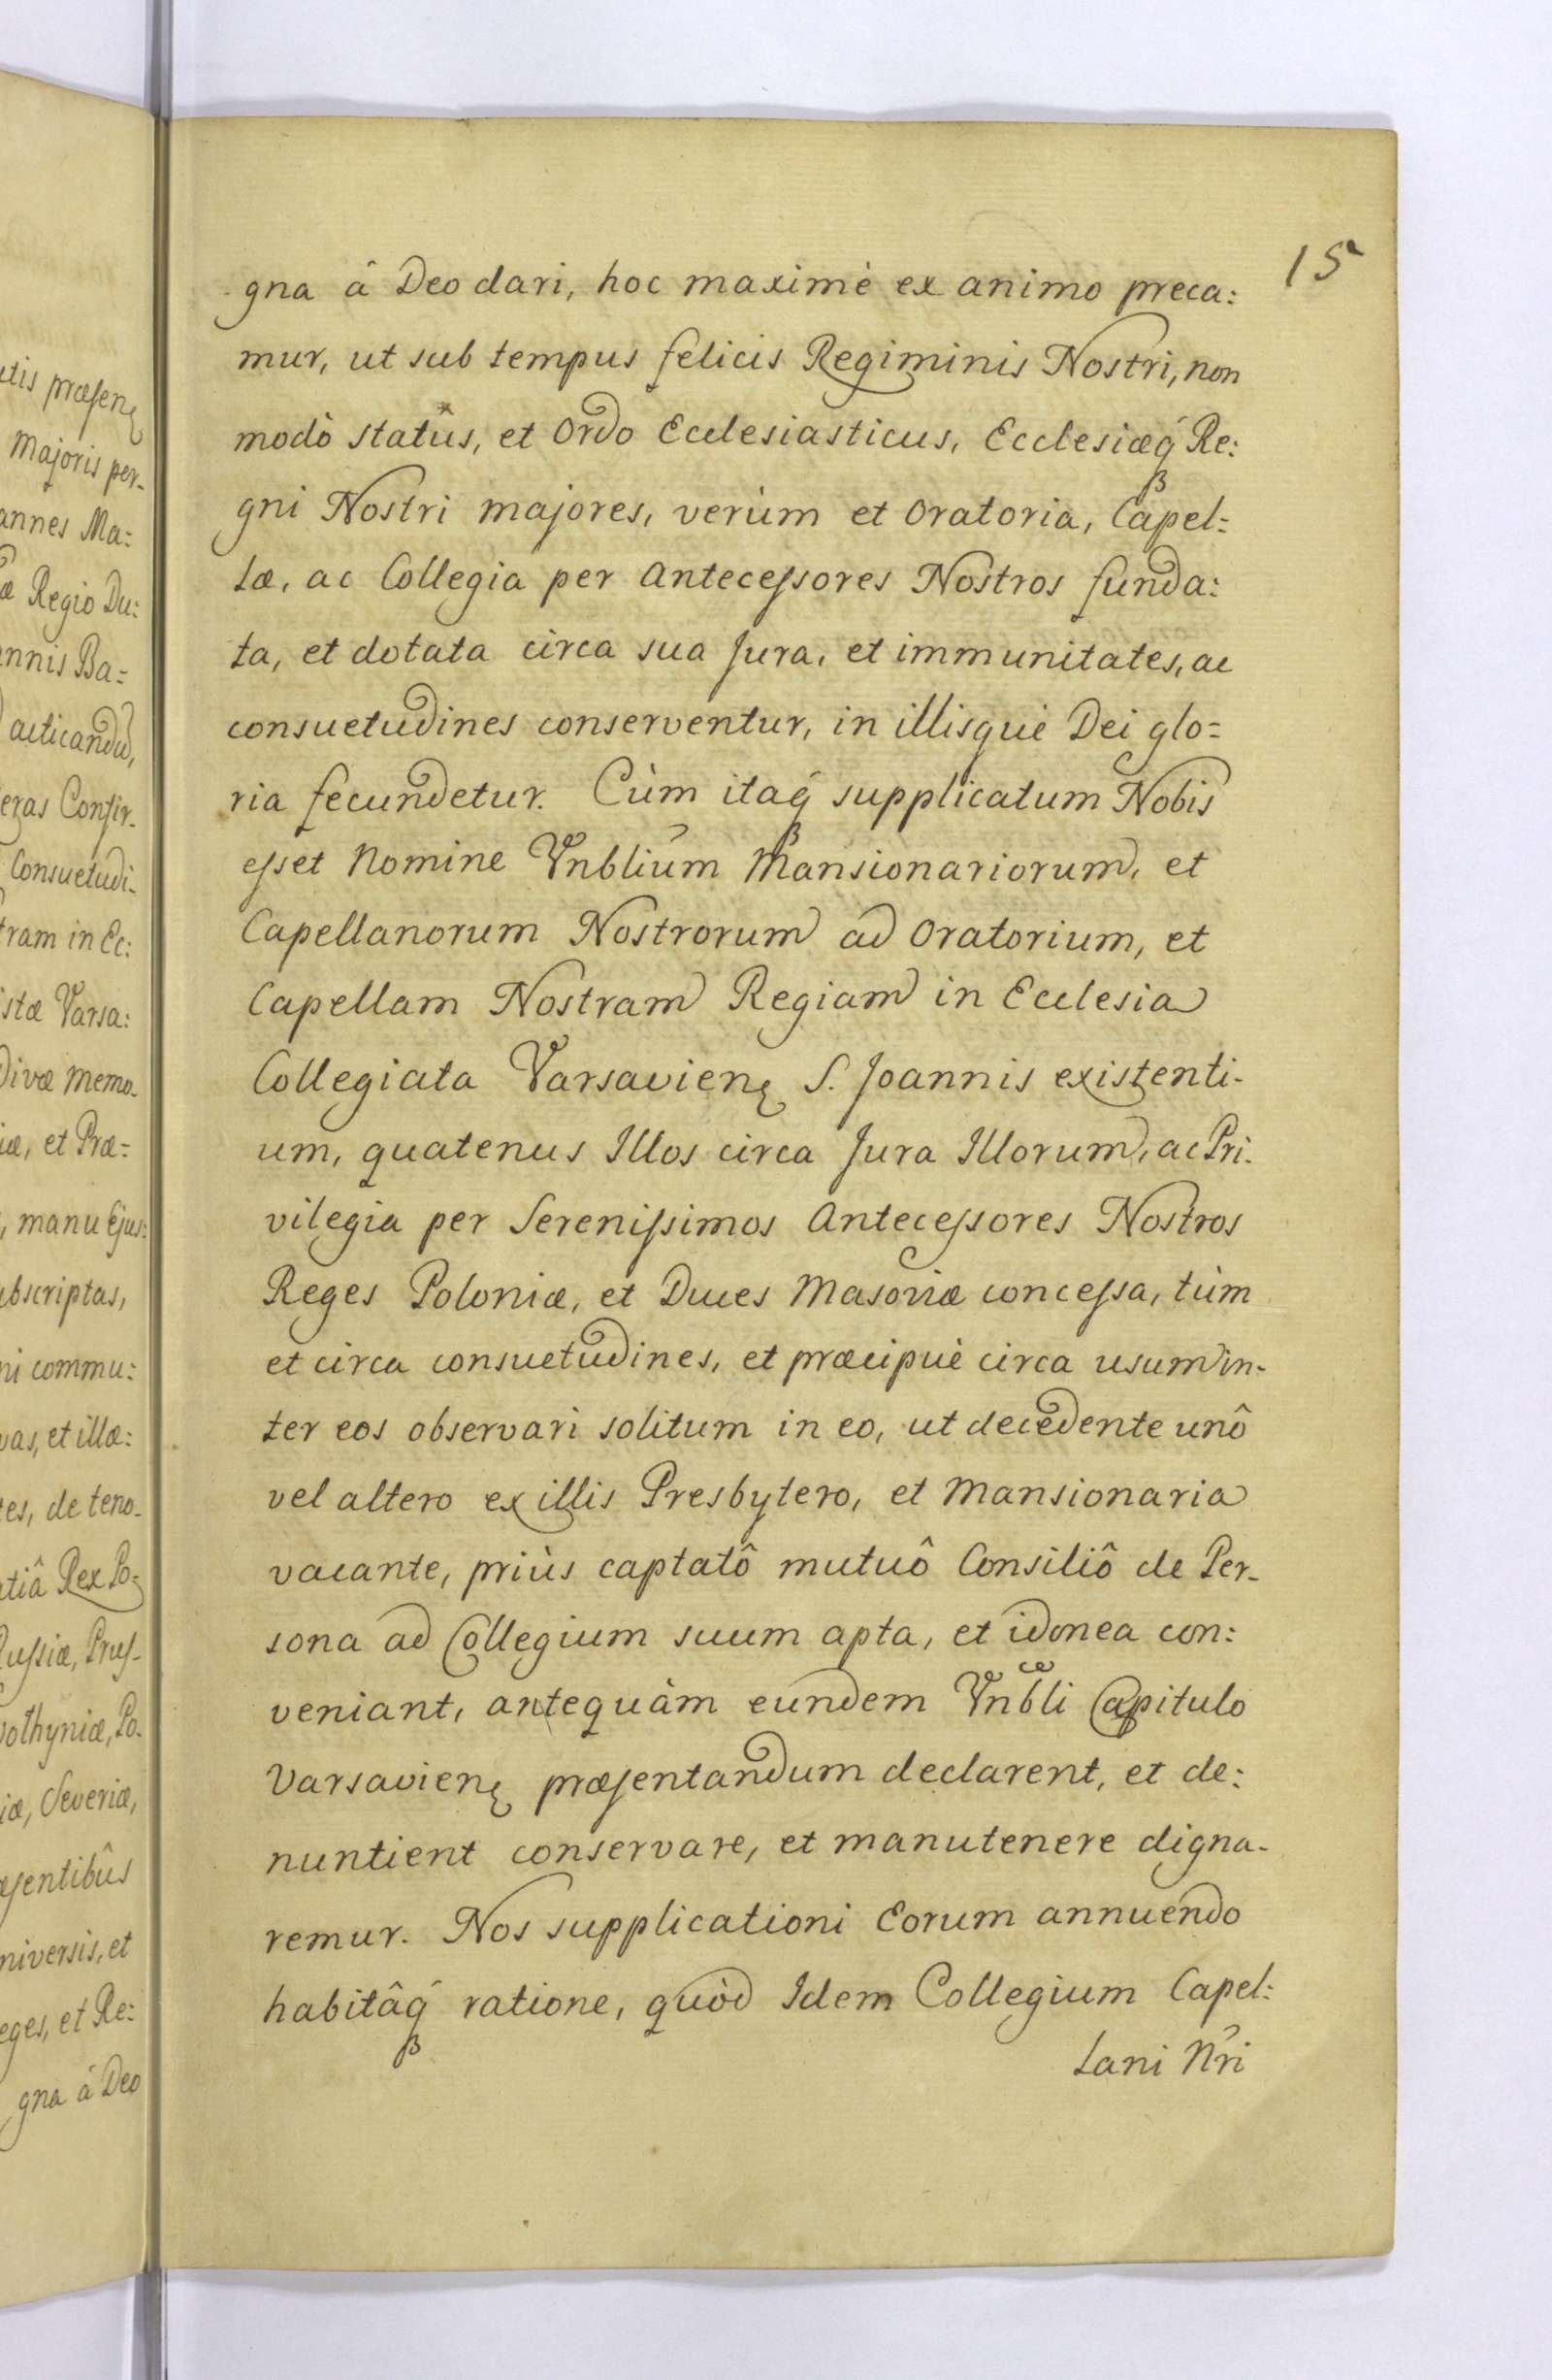 15
gna â Deo dari, hoc maximè ex animo preca:
mur, ut sub tempus felicis Regiminis Nostri, non
modò statûs, et Ordo Ecclesiasticus, Ecclesiæq́ Re:
gni Nostri majores, verùm et Oratoria, Capel:
læ, ac Collegia per Anteceſsores Nostros funda:
ta, et dotata circa sua Jura, et immunitates, ac
consuetudines conserventur, in illisquè Dei glo=
ria fecundetur. Cùm itaq́ supplicatum Nobis
eſset Nomine Vnblium̃ Mansionariorum, et
Capellanorum Nostrorum ad Oratorium, et
Capellam Nostram Regiam in Ecclesia
Collegiata Varsavienę S. Joannis existenti-
um, quatenus Illos circa Jura Illorum, ac Pri-
vilegia per Sereniſsimos Anteceſsores Nostros
Reges Poloniæ, et Duces Masoviæ conceſsa, tùm
et circa consuetudines, et præcipuè circa usum in-
ter eos observari solitum in eo, ut decedente unô
vel altero ex illis Presbytero, et Mansionaria
vacante, priùs captatô mutuô Consiliô de Per-
sona ad Collegium suum apta, et idonea con:
veniant, antequàm eundem Vnbli Capitulo
Varsavienę præſentandum declarent, et de:
nuntient conservare, et manutenere digna-
remur. Nos supplicationi Eorum annuendo
habitâq́ ratione, quòd Idem Collegium Capel:
lani Nr̃i
utis præſenę
Majoris per-
annes Ma:
æ Regio Du:
annis Ba=
acticandũ,
eras Confir-
Consuetudi-
tram in Ec:
istæ Varsa:
Divæ Memo-
iæ, et Præ=
, manu Ejus:
ubscriptas,
ni commu:
vas, et illæ:
tes, de teno-
atiâ Rex Po-
Ruſsiæ, Pruſ-
othyniæ, Po-
iæ, Severiæ,
æſentibûs
niversis, et
eges, et Re:
gna â Deo